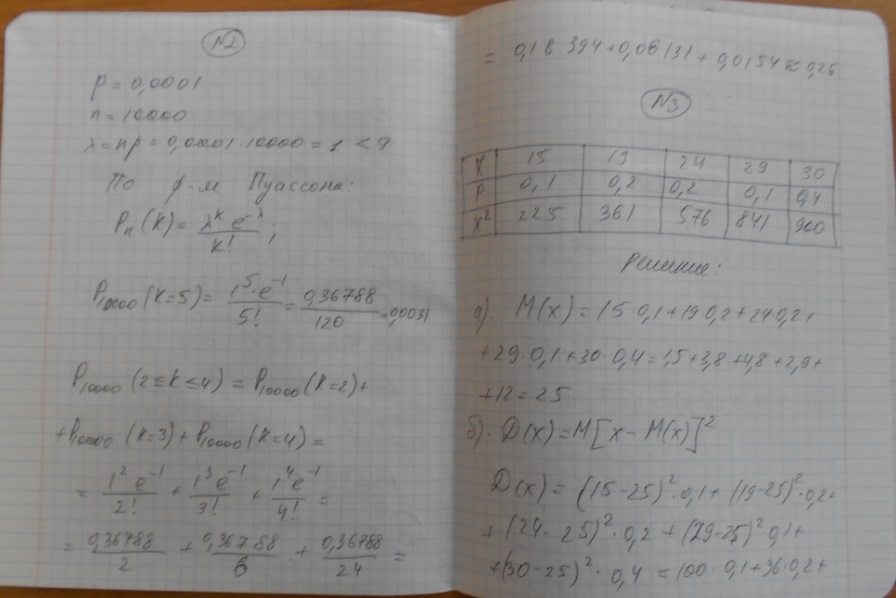 N2
p = 0,0001
n = 10000
λ = np = 0,0001·10000 = 1 < 9
По ф-м Пуассона:
Pn(K) = λ^k e^-λ / K! ;
P10000(K=5) = 1^5·e^-1 / 5! = 0,36788 / 120 = 0,0031
P10000(2≤K≤4) = P10000(K=2)+
+P10000(K=3)+P10000(K=4) =
= 1^2 e^-1 / 2! + 1^3 e^-1 / 3! + 1^4 e^-1 / 4! =
= 0,36788 / 2 + 0,36788 / 6 + 0,36788 / 24 =
= 0,18394+0,06131+0,0154≈0,26
N3
X 15 19 24 29 30
P 0,1 0,2 0,2 0,1 0,4
X² 225 361 576 841 900
Решение:
а). M(x) = 15·0,1+19·0,2+24·0,2+
+29·0,1+30·0,4=1,5+3,8+4,8+2,9+
+12=25.
б). D(x)=M[x-M(x)]²
D(x) = (15-25)²·0,1+(19-25)²·0,2+
+(24-25)²·0,2+(29-25)²·0,1+
+(30-25)²·0,4=100·0,1+36·0,2+